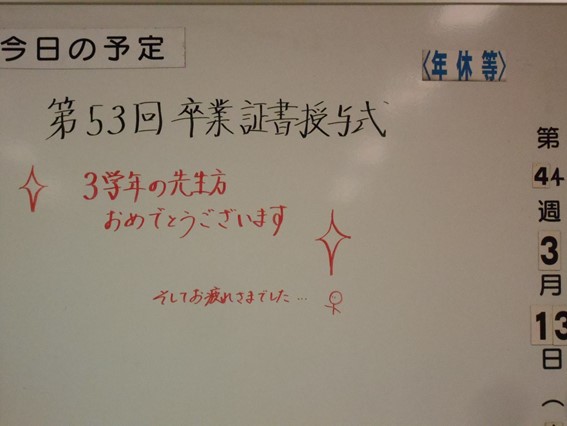 今日の予定
〈年休等〉
第53回 卒業証書授与式
3学年の先生方
おめでとうございます
そしてお疲れさまでした…
第44週3月13日(